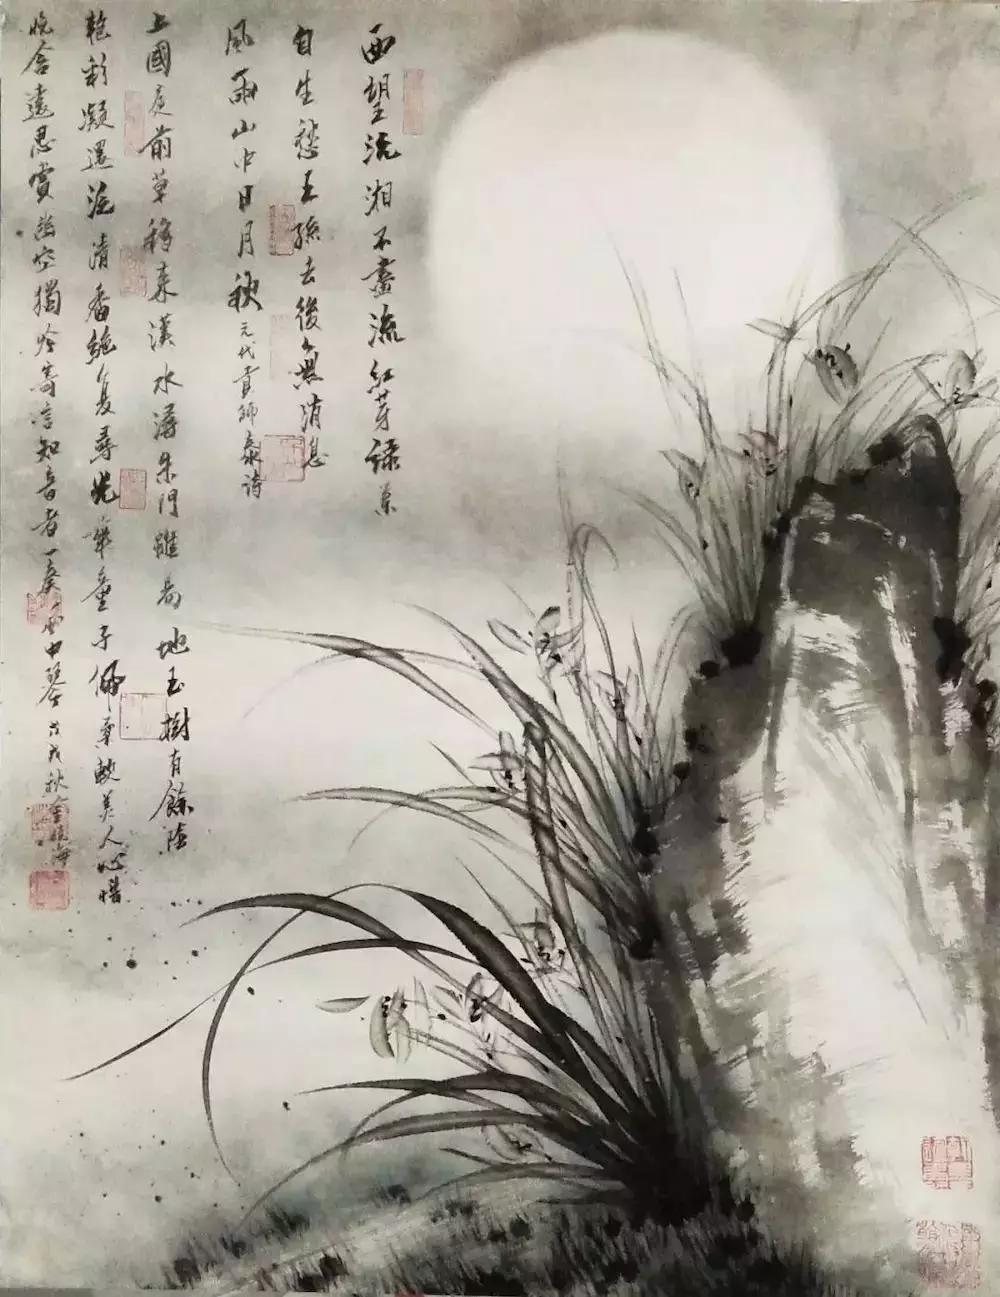 西望沅湘不盡流紅芽綠葉
自生愁王孫去後無消息
風雨山中日月秋 元代貢師泰詩
上國庭前草移來漢水潯朱門雖易地玉樹有餘陰
艷彩凝還泛清香絕復尋光華童子佩柔軟美人心惜
晚含遠思賞幽空獨吟寄言知音者一奏風中琴 戊戌秋金曉海